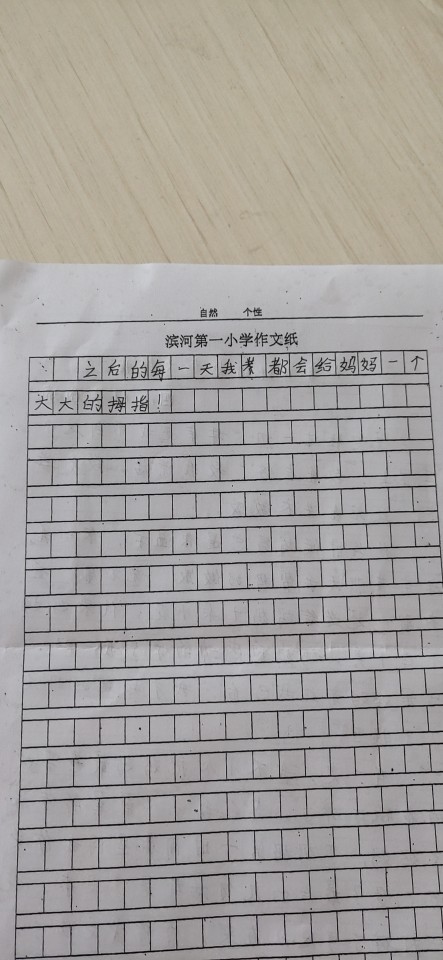 自然 个性
滨河第一小学作文纸
之后的每一天我都会给妈妈一个
大大的拇指!